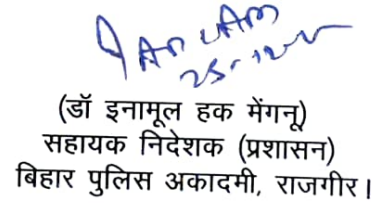 25-12-
(डॉ इनामूल हक मेंगनू)
सहायक निदेशक (प्रशासन)
बिहार पुलिस अकादमी, राजगीर।